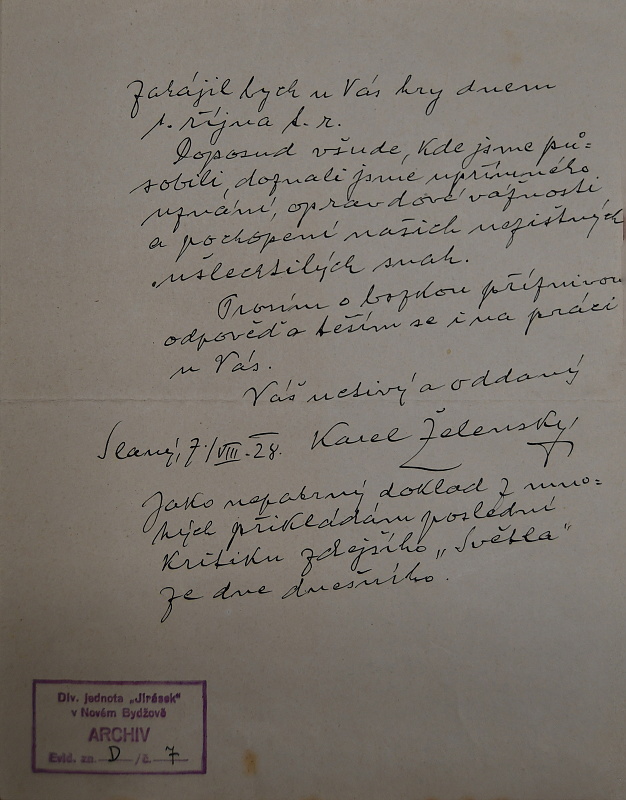 Zahájil bych u Vás hry dnem
1. října t. r.
Doposud všude, kde jsme pů=
sobili, doznali jsme upřímného
uznání, opravdové vážnosti
a pochopení našich nezištných
ušlechtilých snah.
Prosím o brzkou příznivou
odpověď a těším se i na práci
u Vás.
Váš uctivý a oddaný
Slaný, 7./VIII.-28. Karel Želenský,
Jako nepatrný doklad z mno=
hých přikládám poslední
kritiku zdejšího „Světla"
ze dne dnešního.
Div. jednota „Jirásek"
v Novém Bydžově
ARCHIV
Evid. zn. D /č. 7